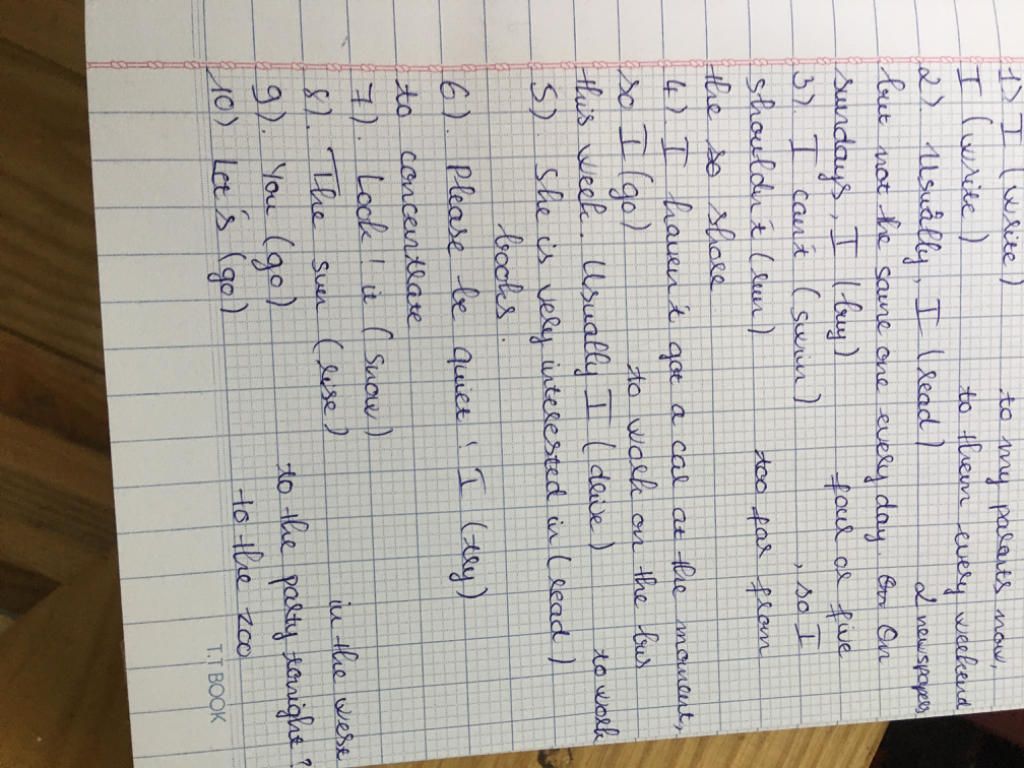 1) I (write) to my parents now,
I (write) to them every weekend
2). Usually, I (read) 2 newspapers,
but not the same one every day. On
sundays, I (buy) four or five
3). I can't (swim) , so I
shouldn't (swim) too far from
the shore
4). I haven't got a car at the moment,
so I (go) to work on the bus
this week. Usually I (drive) to work
5). She is very interested in (read)
books.
6). Please be quiet! I (try)
to concentrate
7). Look! it (snow)
8). The sun (rise) in the west
9). You (go) to the party tonight?
10) Let's (go) to the zoo
T.T BOOK